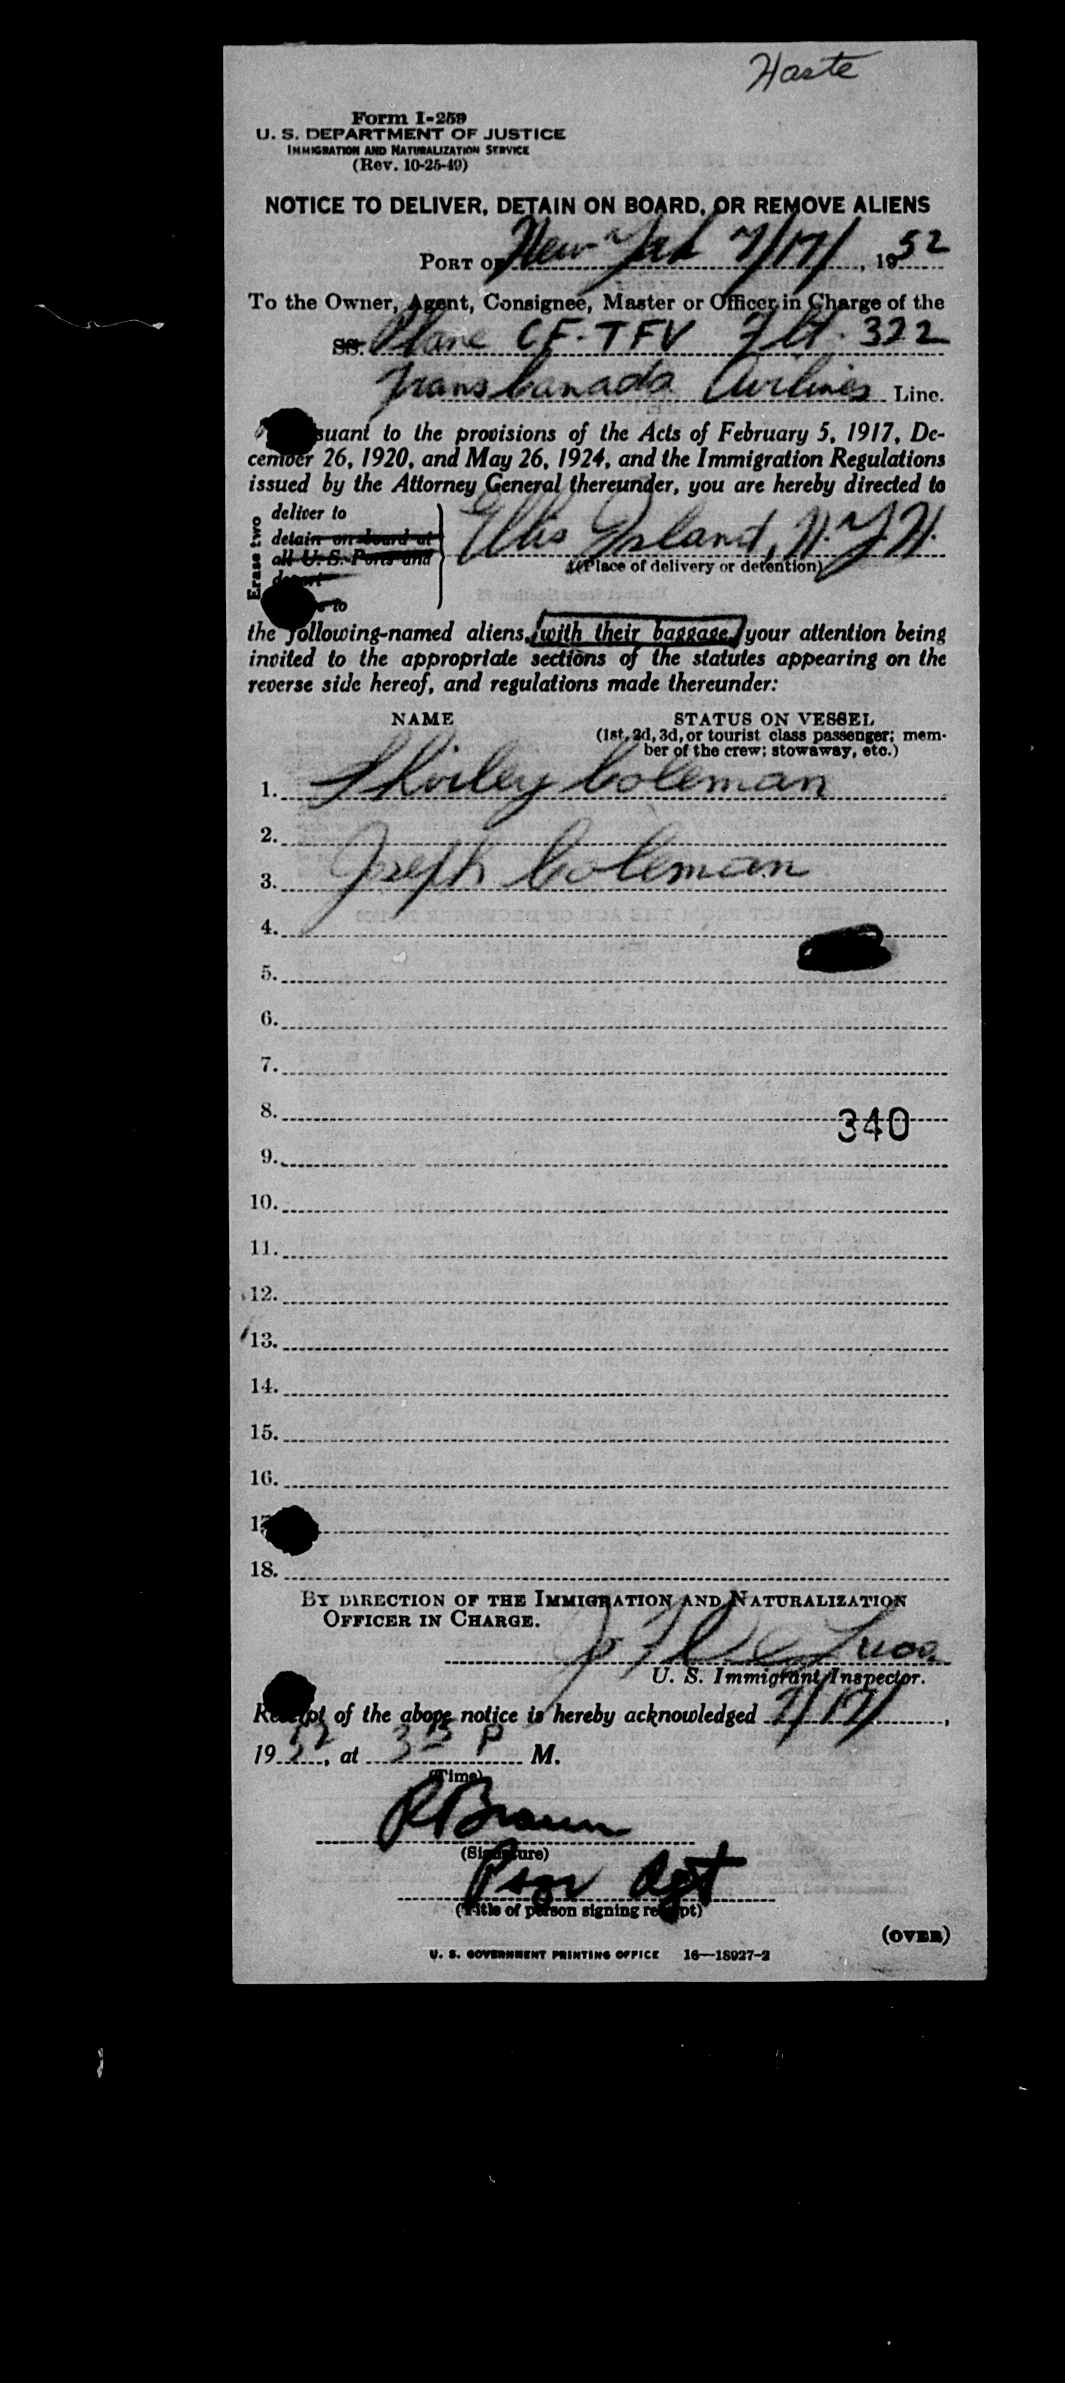 Haste
Form I-259
U. S. DEPARTMENT OF JUSTICE
IMMIGRATION AND NATURALIZATION SERVICE
(Rev. 10-25-49)
NOTICE TO DELIVER, DETAIN ON BOARD, OR REMOVE ALIENS
PORT OF New York 7/17/, 1952
To the Owner, Agent, Consignee, Master or Officer in Charge of the
SS. Plane CF-TFV Flt. 322
Trans Canada Airlines Line.
suant to the provisions of the Acts of February 5, 1917, De-
cember 26, 1920, and May 26, 1924, and the Immigration Regulations
issued by the Attorney General thereunder, you are hereby directed to
Erase two
deliver to
detain on board at
all U. S. Ports and
deport
to
Ellis Island, N.Y.H.
(Place of delivery or detention)
the following-named aliens, with their baggage, your attention being
invited to the appropriate sections of the statutes appearing on the
reverse side hereof, and regulations made thereunder:
NAME STATUS ON VESSEL
(1st, 2d, 3d, or tourist class passenger; mem-
ber of the crew; stowaway, etc.)
1. Shirley Coleman
2.
3. Joseph Coleman
4.
5.
6.
7.
8. 340
9.
10.
11.
12.
13.
14.
15.
16.
17
18.
BY DIRECTION OF THE IMMIGRATION AND NATURALIZATION
OFFICER IN CHARGE.
J F De Luca
U. S. Immigrant Inspector.
Receipt of the above notice is hereby acknowledged 7/17/,
1952, at 335 P M.
(Time)
R Braun
(Signature)
Psgr Agt
(Title of person signing receipt)
(OVER)
U. S. GOVERNMENT PRINTING OFFICE 16—18927-2